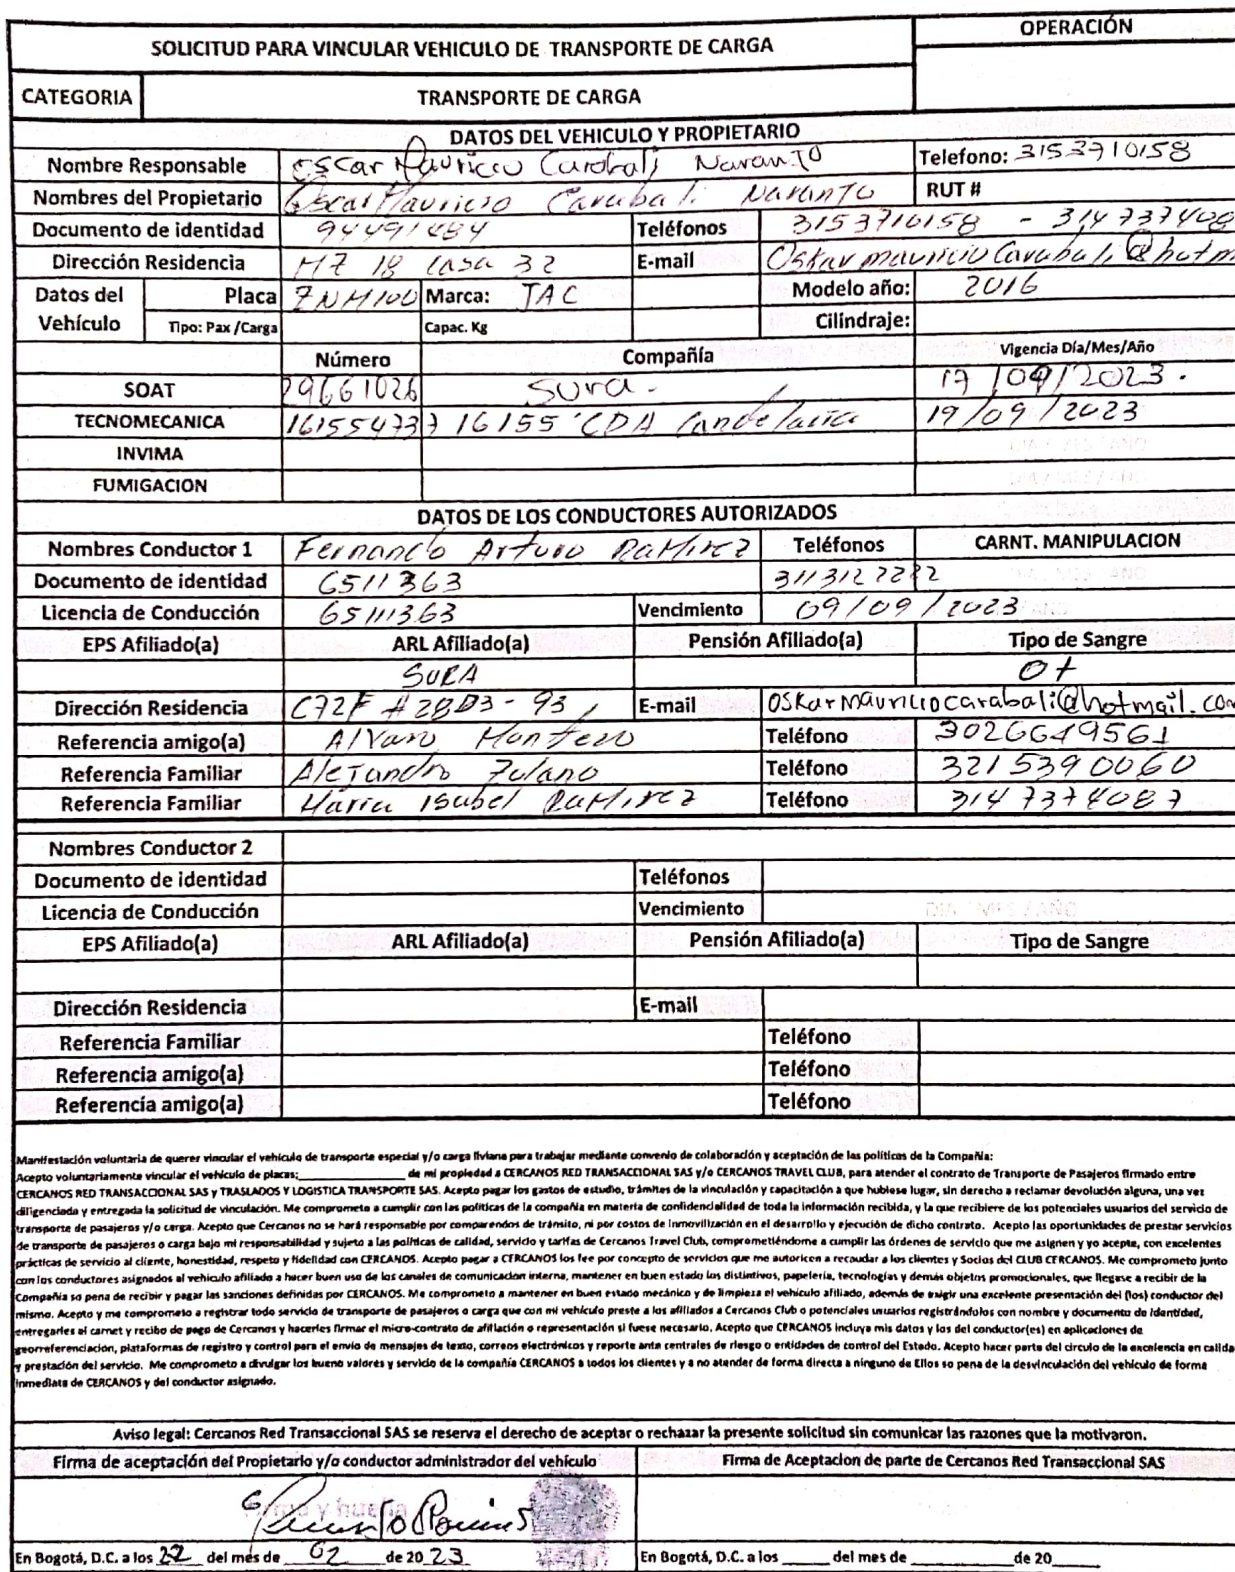 SOLICITUD PARA VINCULAR VEHICULO DE TRANSPORTE DE CARGA
OPERACIÓN
CATEGORIA TRANSPORTE DE CARGA
DATOS DEL VEHICULO Y PROPIETARIO
Nombre Responsable Oscar Mauricio Carabali Naranjo Telefono: 3153710158
Nombres del Propietario Oscar Mauricio Carabali Naranjo RUT #
Documento de identidad 94491484 Teléfonos 3153710158 - 314737408
Dirección Residencia MZ 18 Casa 32 E-mail Oskarmauriciocarabali@hotm
Datos del Vehículo Placa ZNM100 Marca: JAC Modelo año: 2016
Tipo: Pax /Carga Capac. Kg Cilindraje:
Número Compañía Vigencia Día/Mes/Año
SOAT 29661026 Sura. 17/09/2023.
TECNOMECANICA 161554737 16155 CDA Candelaria 19/09/2023
INVIMA
FUMIGACION
DATOS DE LOS CONDUCTORES AUTORIZADOS
Nombres Conductor 1 Fernando Arturo Ramirez Teléfonos CARNT. MANIPULACION
Documento de identidad 6511363 3113127222
Licencia de Conducción 6511363 Vencimiento 09/09/2023
EPS Afiliado(a) ARL Afiliado(a) Pensión Afiliado(a) Tipo de Sangre
SURA O+
Dirección Residencia C72F #28D3-93 E-mail Oskarmauriciocarabali@hotmail.com
Referencia amigo(a) Alvaro Montero Teléfono 3026649561
Referencia Familiar Alejandro Zulano Teléfono 3215390060
Referencia Familiar Maria Isabel Ramirez Teléfono 3147374087
Nombres Conductor 2
Documento de identidad Teléfonos
Licencia de Conducción Vencimiento
EPS Afiliado(a) ARL Afiliado(a) Pensión Afiliado(a) Tipo de Sangre
Dirección Residencia E-mail
Referencia Familiar Teléfono
Referencia amigo(a) Teléfono
Referencia amigo(a) Teléfono
Manifestación voluntaria de querer vincular el vehículo de transporte especial y/o carga liviana para trabajar mediante convenio de colaboración y aceptación de las políticas de la Compañia:
Acepto voluntariamente vincular el vehículo de placas;____________ de mi propiedad a CERCANOS RED TRANSACCIONAL SAS y/o CERCANOS TRAVEL CLUB, para atender el contrato de Transporte de Pasajeros firmado entre
CERCANOS RED TRANSACCIONAL SAS y TRASLADOS Y LOGISTICA TRANSPORTE SAS. Acepto pagar los gastos de estudio, trámites de la vinculación y capacitación a que hubiese lugar, sin derecho a reclamar devolución alguna, una vez
diligenciada y entregada la solicitud de vinculación. Me comprometo a cumplir con las políticas de la compañía en materia de confidencialidad de toda la información recibida, y la que recibiere de los potenciales usuarios del servicio de
transporte de pasajeros y/o carga. Acepto que Cercanos no se hará responsable por comparendos de tránsito, ni por costos de inmovilización en el desarrollo y ejecución de dicho contrato. Acepto las oportunidades de prestar servicios
de transporte de pasajeros o carga bajo mi responsabilidad y sujeto a las políticas de calidad, servicio y tarifas de Cercanos Travel Club, comprometiéndome a cumplir las órdenes de servicio que me asignen y yo acepte, con excelentes
prácticas de servicio al cliente, honestidad, respeto y fidelidad con CERCANOS. Acepto pagar a CERCANOS los fee por concepto de servicios que me autoricen a recaudar a los clientes y Socios del CLUB CERCANOS. Me comprometo junto
con los conductores asignados al vehículo afiliado a hacer buen uso de los canales de comunicacion interna, mantener en buen estado los distintivos, papelería, tecnologías y demás objetos promocionales, que llegase a recibir de la
Compañia so pena de recibir y pagar las sanciones definidas por CERCANOS. Me comprometo a mantener en buen estado mecánico y de limpieza el vehículo afiliado, además de exigir una excelente presentación del (los) conductor del
mismo. Acepto y me comprometo a registrar todo servicio de transporte de pasajeros o carga que con mi vehículo preste a los afiliados a Cercanos Club o potenciales usuarios registrándolos con nombre y documento de identidad,
entregarles el carnet y recibo de pago de Cercanos y hacerles firmar el micro-contrato de afiliación o representación si fuese necesario. Acepto que CERCANOS incluya mis datos y los del conductor(es) en aplicaciones de
georreferenciación, plataformas de registro y control para el envío de mensajes de texto, correos electrónicos y reporte ante centrales de riesgo o entidades de control del Estado. Acepto hacer parte del círculo de la excelencia en calida
y prestación del servicio. Me comprometo a divulgar los bueno valores y servicio de la compañía CERCANOS a todos los clientes y a no atender de forma directa a ninguno de Ellos so pena de la desvinculación del vehículo de forma
inmediata de CERCANOS y del conductor asignado.
Aviso legal: Cercanos Red Transaccional SAS se reserva el derecho de aceptar o rechazar la presente solicitud sin comunicar las razones que la motivaron.
Firma de aceptación del Propietario y/o conductor administrador del vehículo Firma de Aceptacion de parte de Cercanos Red Transaccional SAS
Firma y huella
En Bogotá, D.C. a los 22 del mes de 02 de 2023 En Bogotá, D.C. a los _____ del mes de ___________ de 20_____